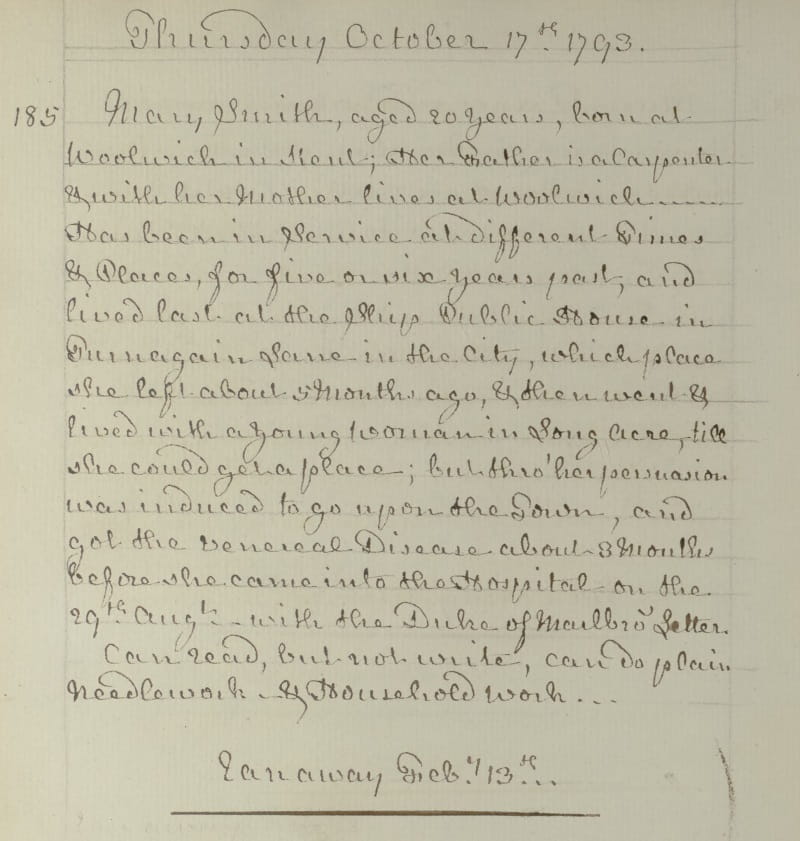 Thursday October 17th 1793.
185 Mary Smith, aged 20 years, born at
Woolwich in Kent; Her Father is a Carpenter
& with her Mother lives at Woolwich
Has been in Service at different Times
& Places, for five or six years past, and
lived last at the Ship Public House in
Turnagain Lane in the City, which place
she left about 5 Months ago, & then went &
lived with a young woman in Long Acre, till
she could get a place; but thro' her persuasion
was induced to go upon the Town, and
got the venereal Disease about 3 Months
before she came into the Hospital on the
29th Augt. with the Duke of Marlbro' Letter.
Can read, but not write, can do plain
Needlework & Household work...
Ran away Feby 13th...